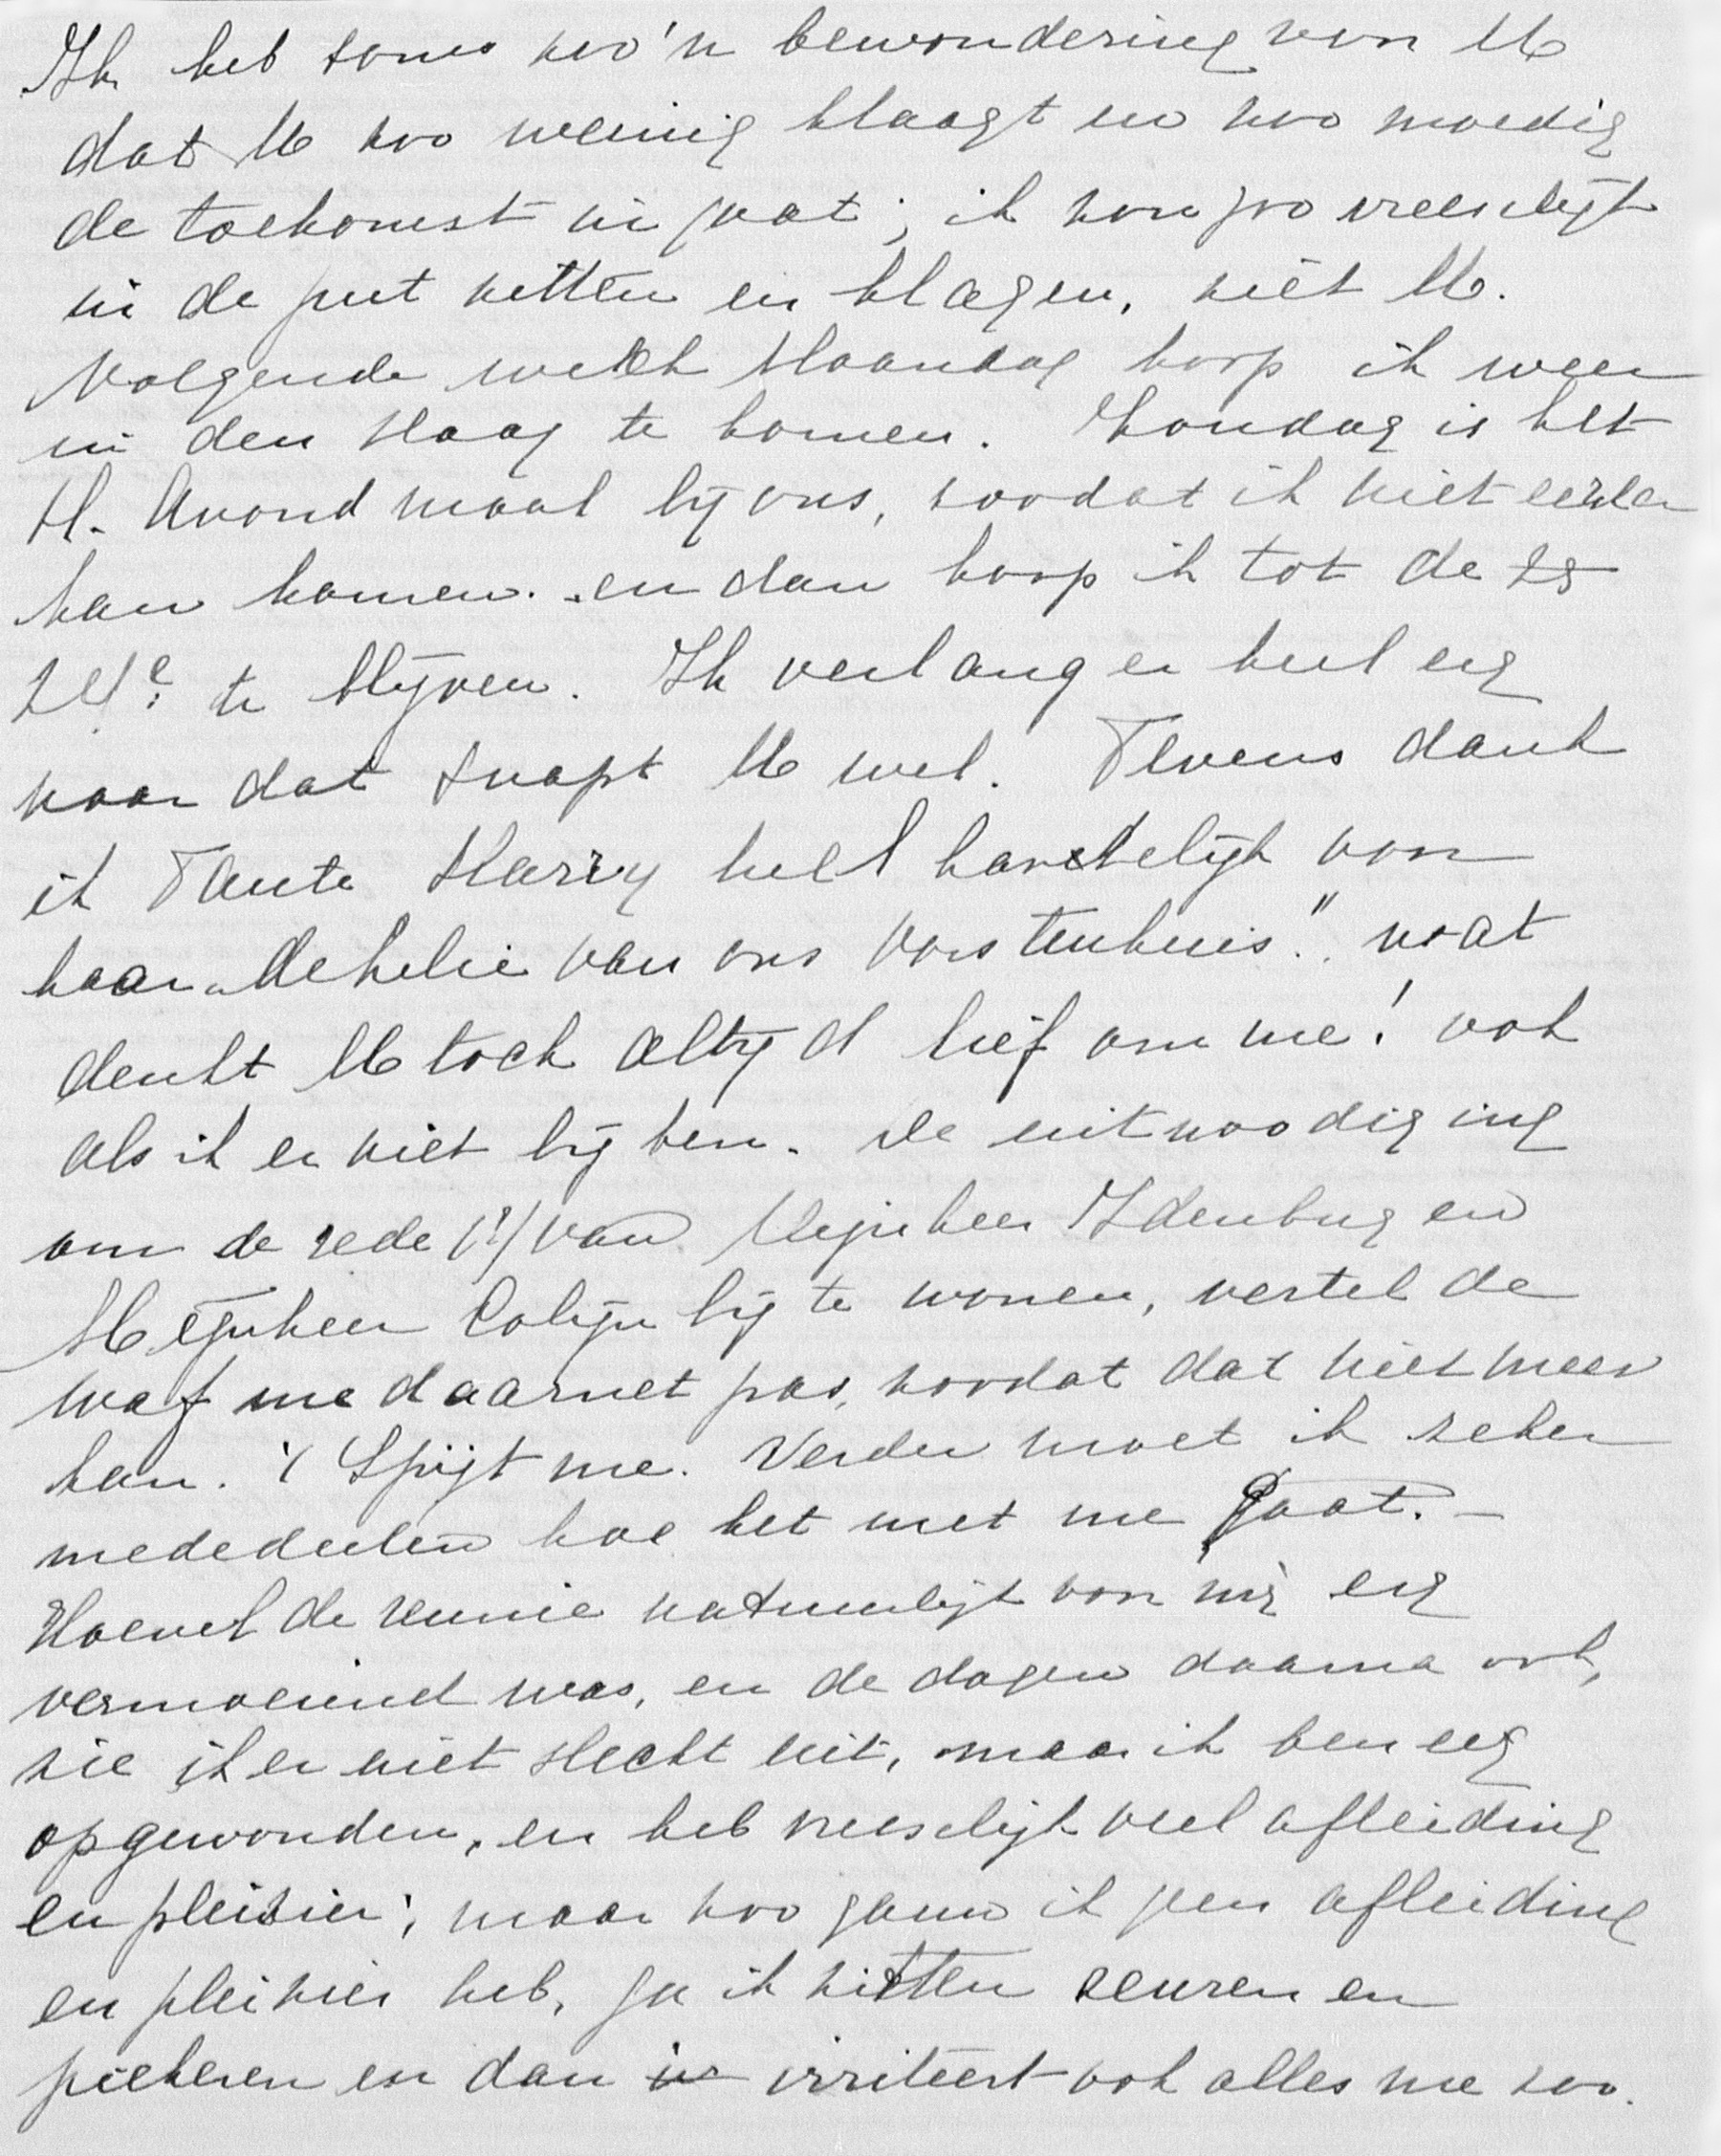 Ik heb soms zoo'n bewondering voor U
dat U zoo weinig klaagt en zoo moedig
de toekomst in gaat; ik zou zoo vreeselijk
in de put zitten en klagen, niet U.
Volgende week Maandag hoop ik weer
in den Haag te komen. Zondag is het
H. Avondmaal bij ons, zoodat ik niet eerder
kan komen. en dan hoop ik tot de 23
24e. te blijven. Ik verlang er heel erg
naar dat snapt U wel. Tevens dank
ik Tante Harry heel hartelijk voor
haar „De helie van ons Vorstenhuis". wat
denkt U toch altijd lief om me! ook
als ik er niet bij ben. De uitnoodiging
om de rede (?) van Mijnheer Idenburg en
Mijnheer Colijn bij te wonen, vertelde
Waf me daarnet pas, zoodat dat niet meer
kan. 't Spijt me. Verder moet ik zeker
mededeelen hoe het met me gaat. –
Hoewel de reunie natuurlijk voor mij erg
vermoeiend was, en de dagen daarna ook,
zie ik er niet slecht uit, maar ik ben erg
opgewonden, en heb vreeselijk veel afleiding
en pleizier; maar zoo gauw ik geen afleiding
en pleizier heb, ga ik zitten zeuren en
piekeren en dan is irriteert ook alles me zoo.